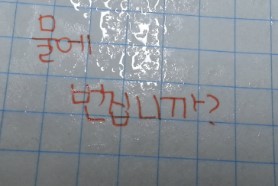 물에
번집니까?